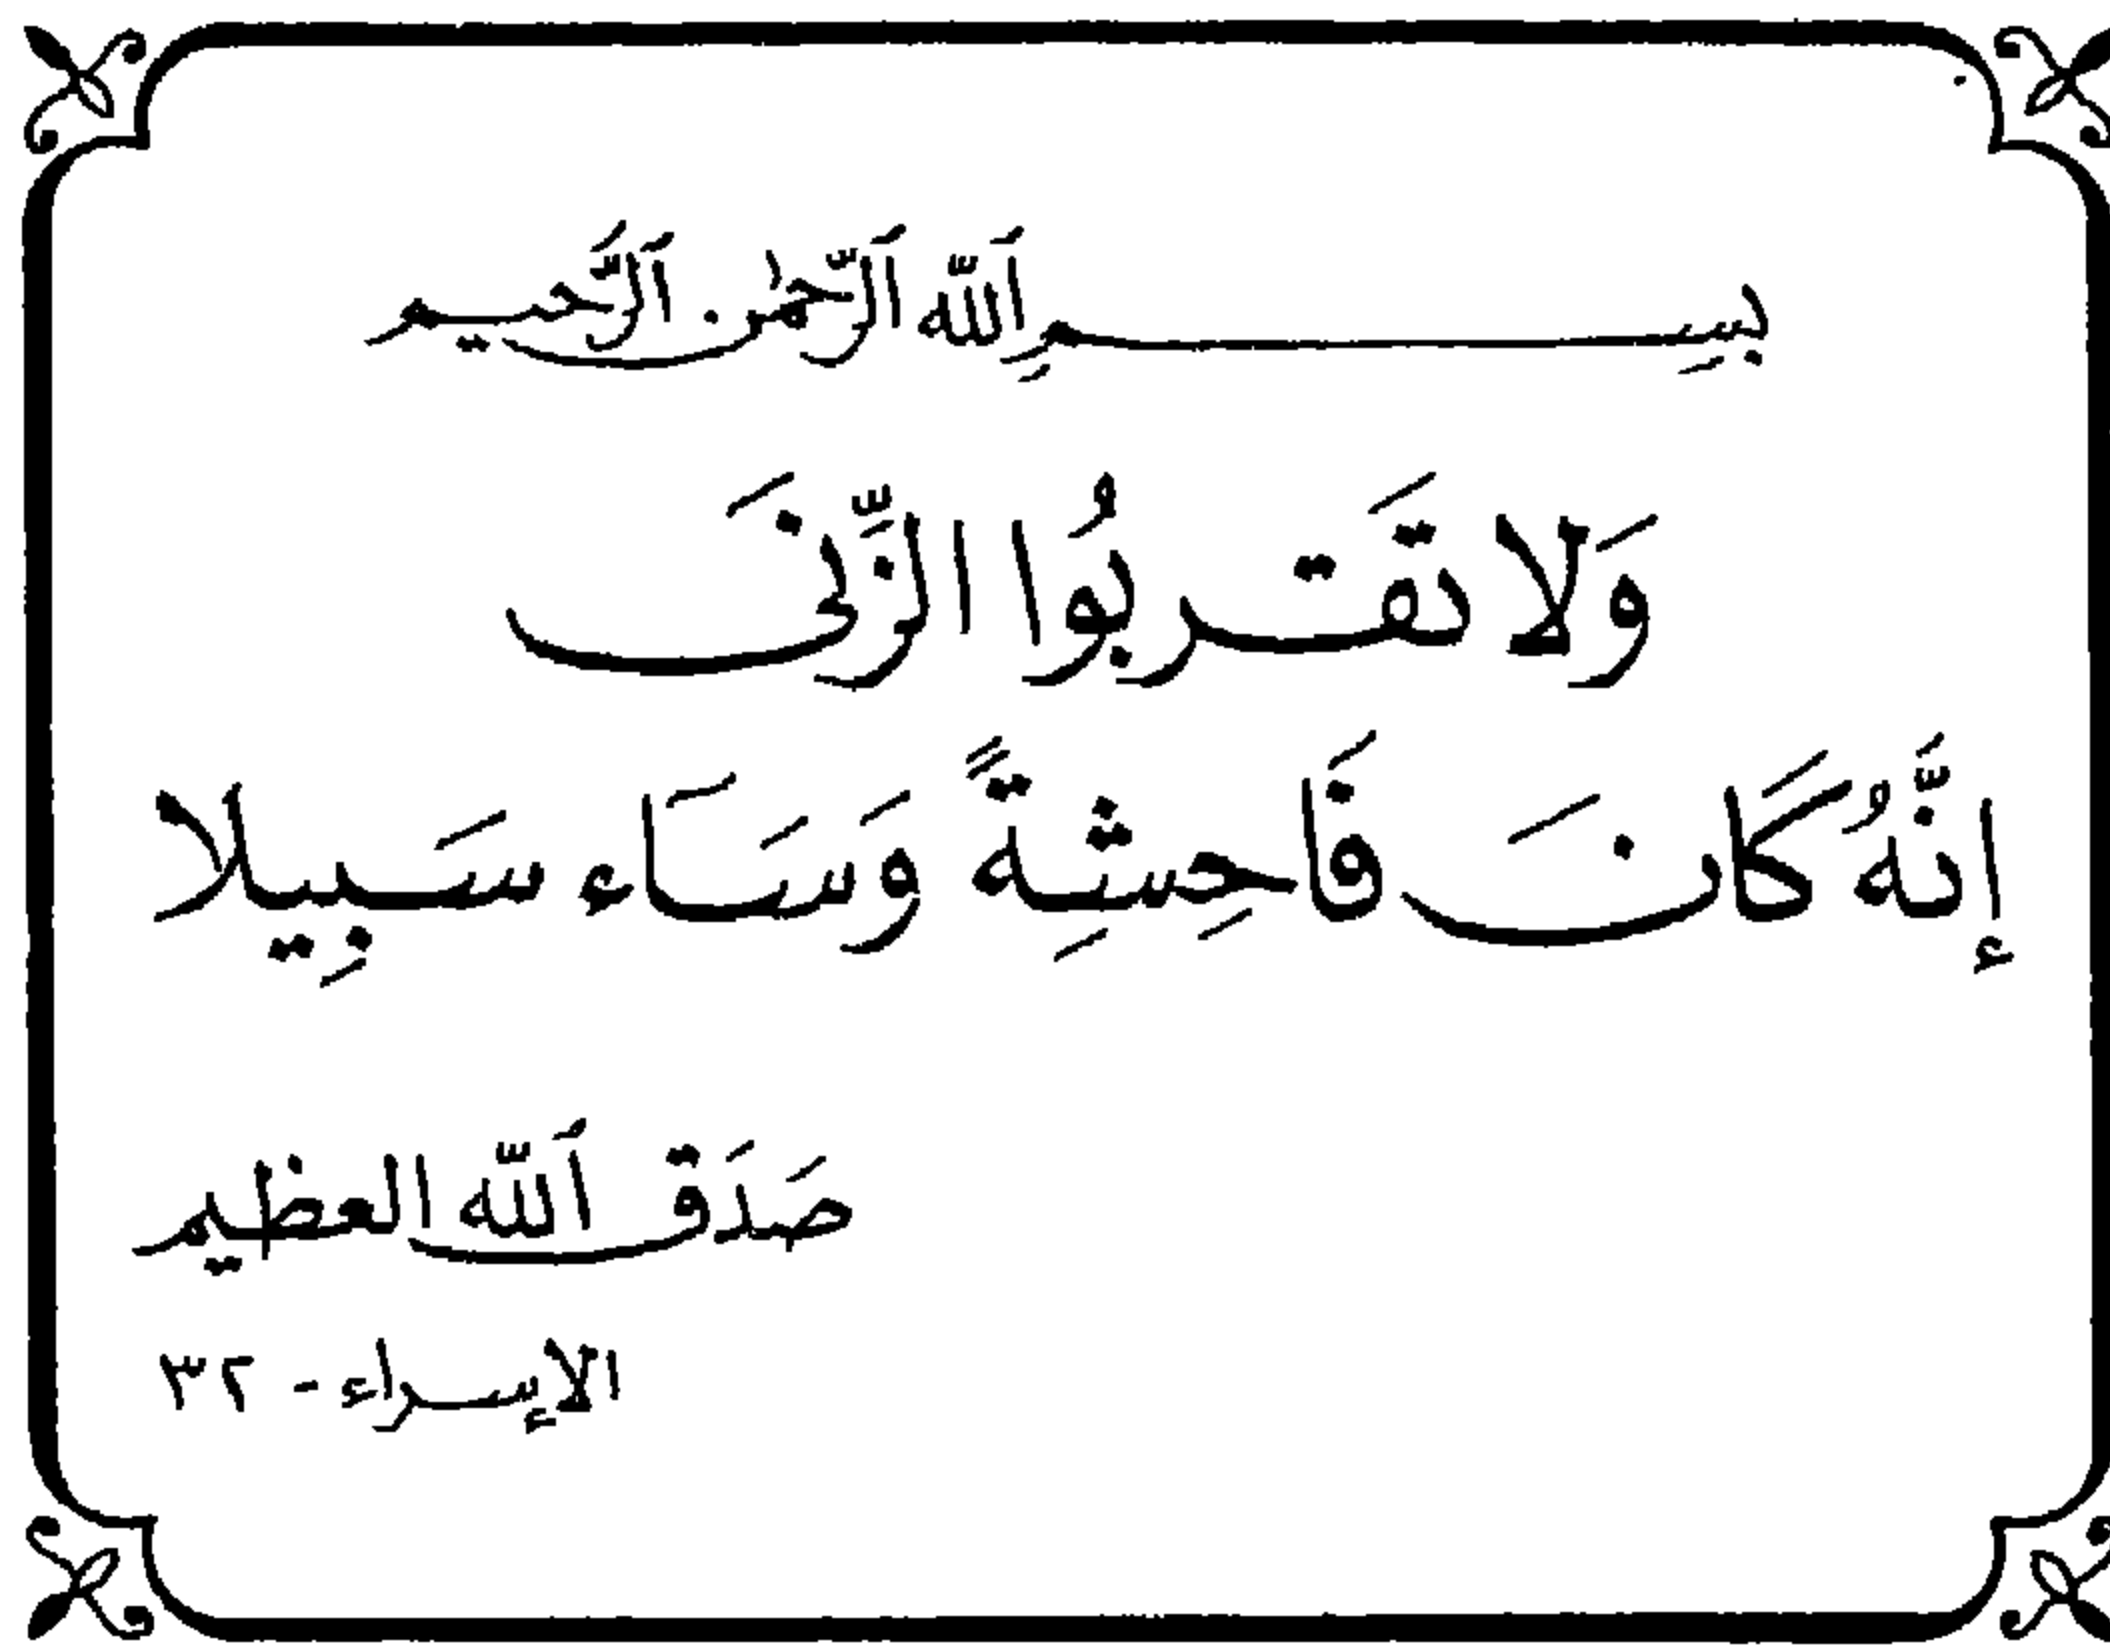 بِسِمِ اَللّٰه اَلرَّحمٰن اَلرَّحيم
وَلَا تَقَربُوا الزِّنَى
إنَّهُ كَانَ فَاحِشِةً وَسَاَء سَبِيلا
صَدَق اَللّه العظيم
الإسراء - ٣٢